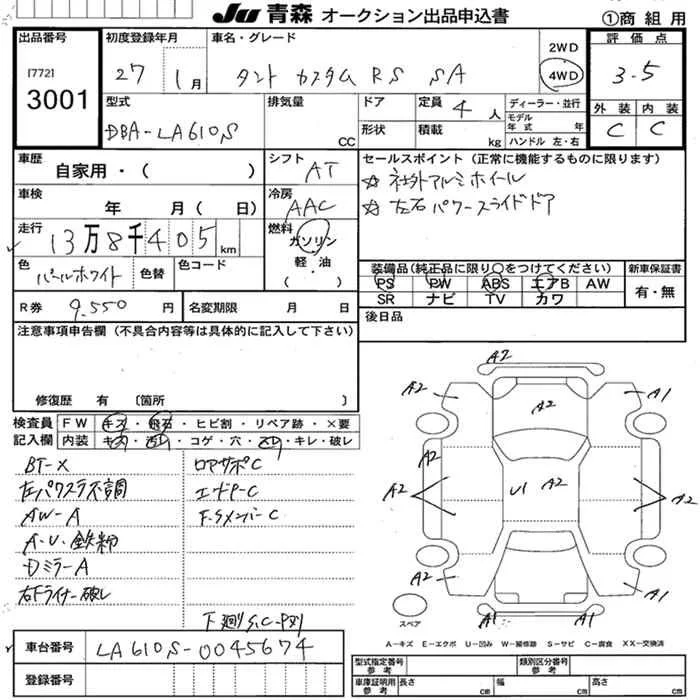 JU 青森 オークション出品申込書
①商組用
出品番号
[772]
3001
初度登録年月
27 1月
車名・グレード
タント カスタム RS SA
2WD
4WD
評価点
3.5
外装 内装
C C
型式
DBA-LA610S
排気量
CC
ドア
形状
定員 4人
積載 kg
ディーラー・並行
モデル年式 年式
ハンドル 左・右
車歴
自家用・( )
シフト
AT
車検
年 月( 日)
冷房
AAC
走行
13万8千405km
燃料
ガソリン
軽・油
( )
色
パールホワイト
色替
色コード
セールスポイント(正常に機能するものに限ります)
☆ 社外アルミホイール
☆ 左右パワースライドドア
装備品(純正品に限り○をつけてください)
PS PW ABS エアB AW
SR ナビ TV カワ
新車保証書
有・無
R券 9,550円
名変期限 月 日
後日品
注意事項申告欄(不具合内容等は具体的に記入して下さい)
修復歴 有 〔箇所 〕
検査員記入欄
FW キズ・飛石・ヒビ割・リペア跡・×要
内装 キズ・汚れ・コゲ・穴・スレ・キレ・破レ
BT-X
左パワスラ不調
AW-A
A・U・鉄粉
DミラーA
右Fライナー破レ
ロアサポC
エンドP-C
F・SメンバーC
下廻りS,C
A2
A2
A1
A2
A2
A2
U1 A2
A2
A2
A1
A1
A1
スペア
A-キズ E-エクボ U-凹み W-補修跡 S-サビ C-腐食 XX-交換済
車台番号
LA610S-0045674
登録番号
型式指定番号 参考
類別区分番号 参考
車庫証明用 参考
長さ cm
幅 cm
高さ cm